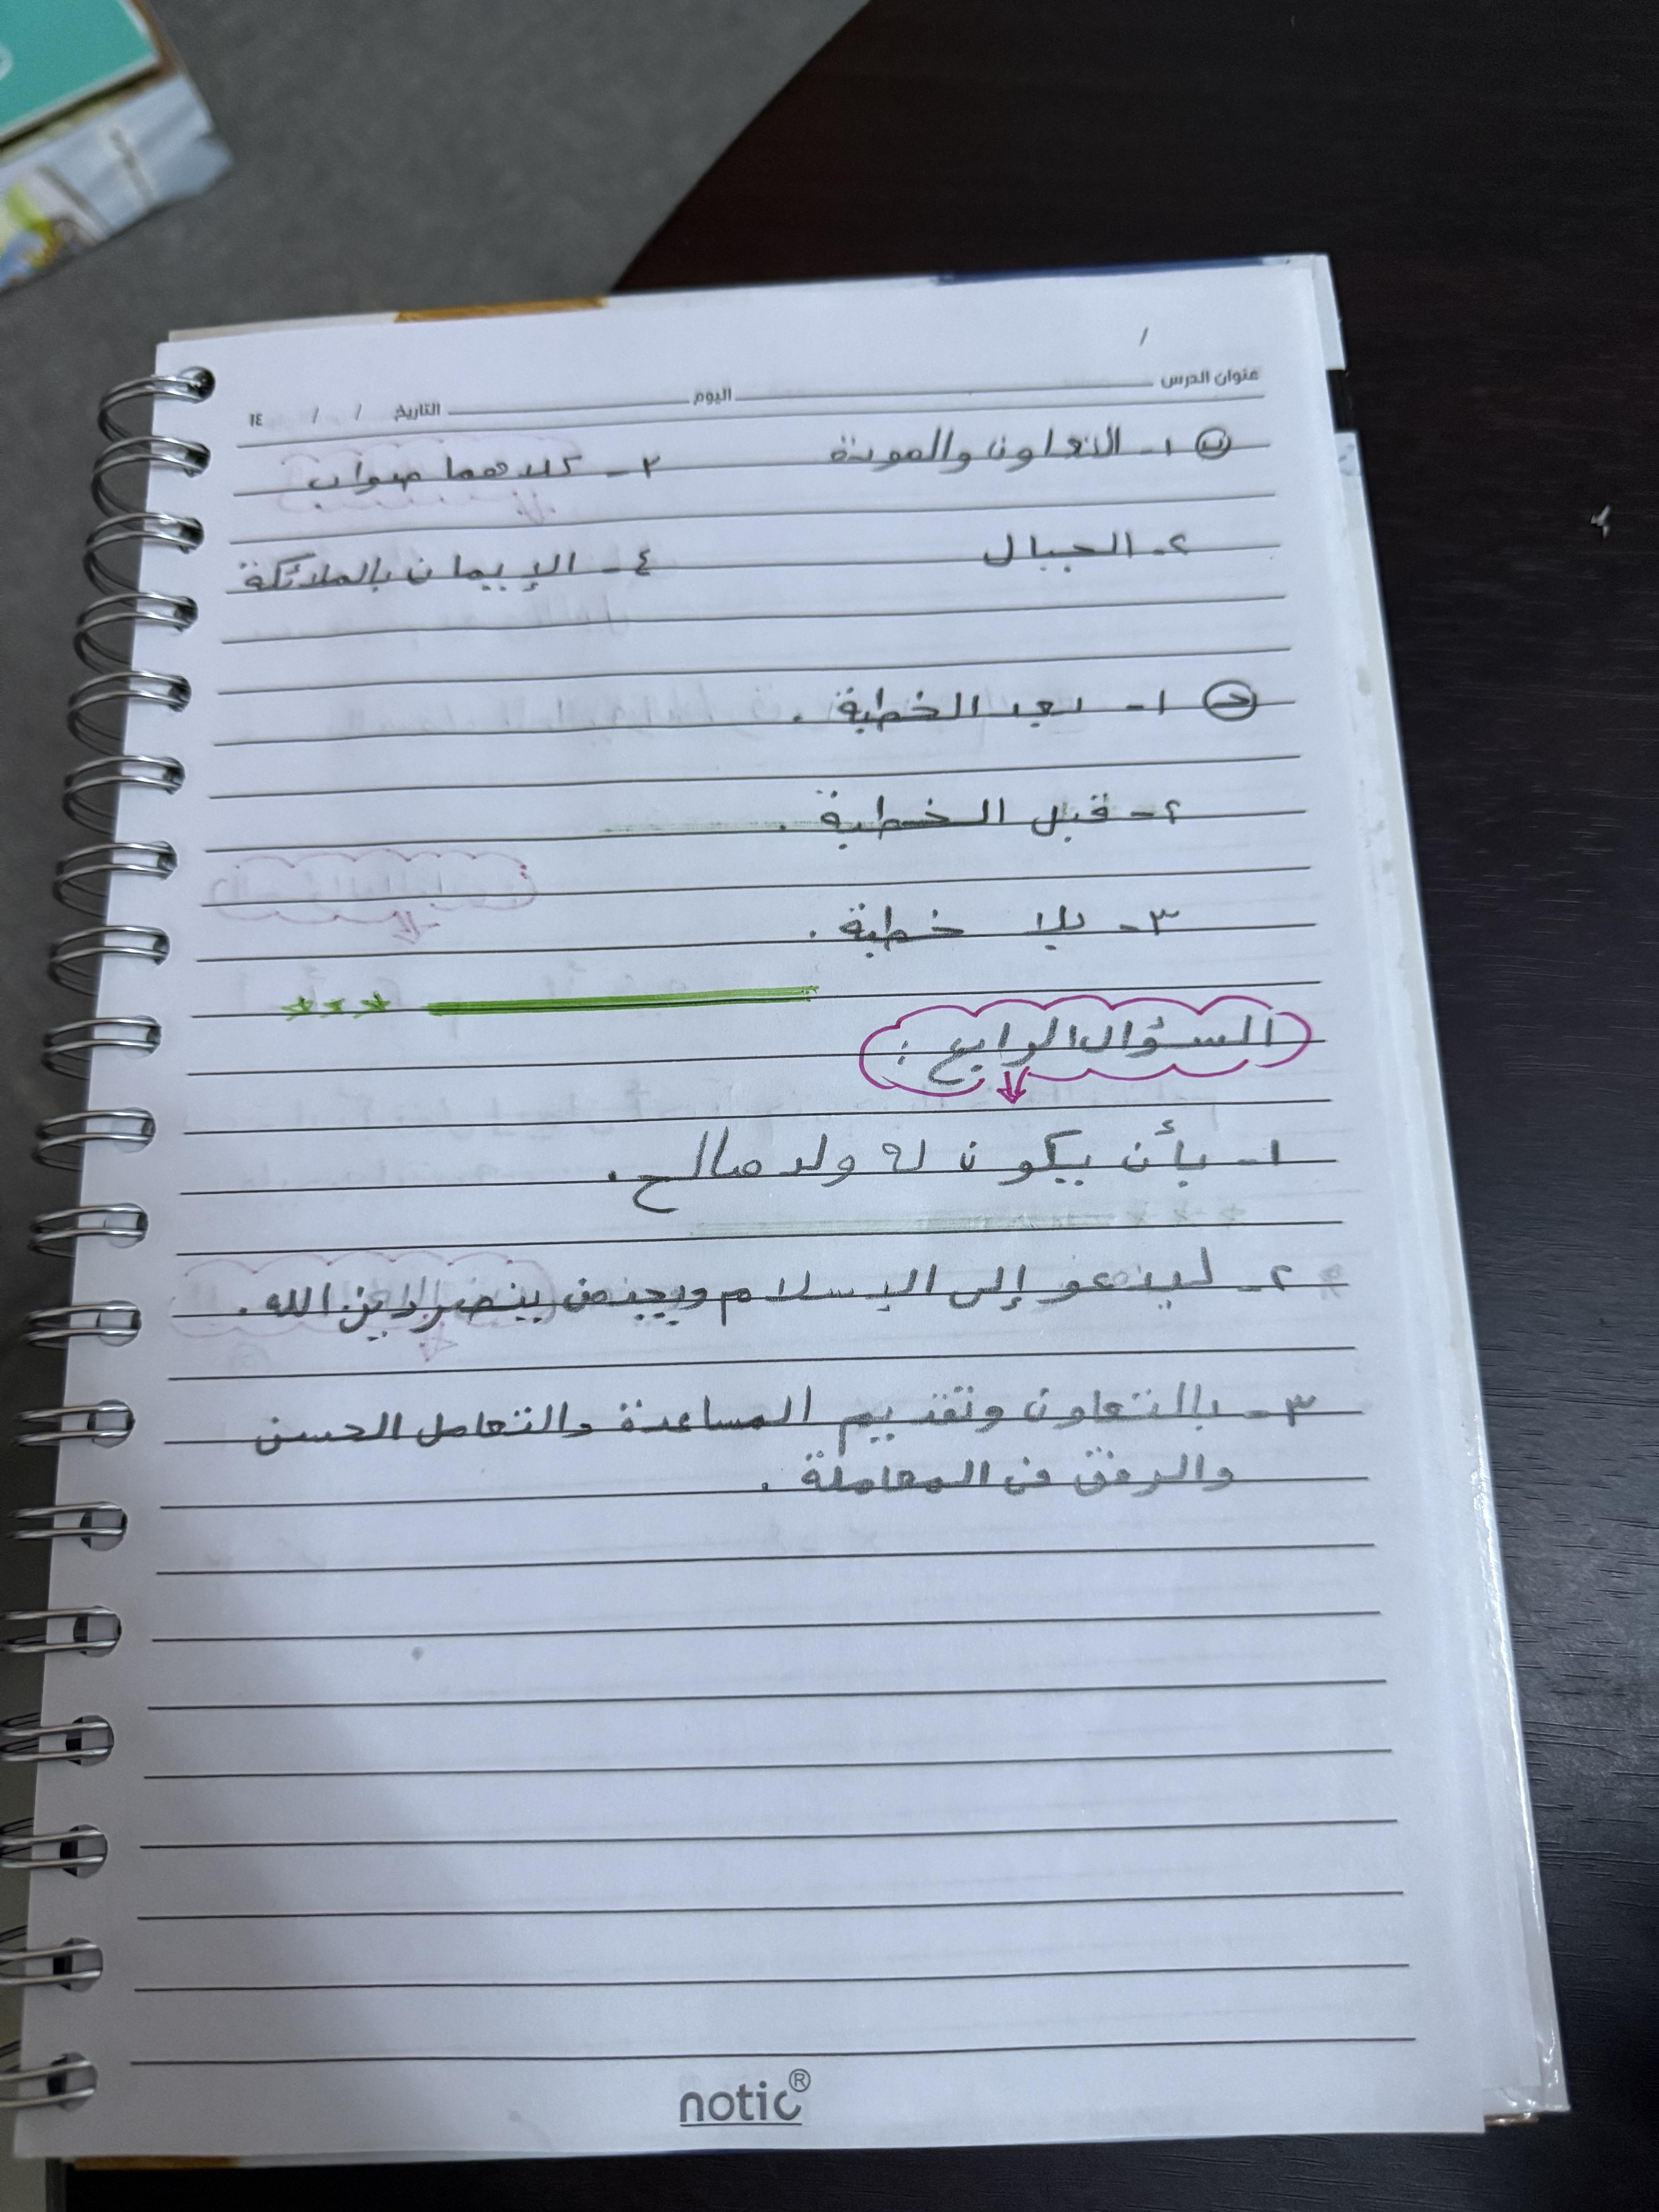 عنوان الدرس اليوم التاريخ / / ١٤
ب ١- التعاون والمودة ٣- كلاهما صواب
٢- الجبال ٤- الإيمان بالملائكة
ج ١- بعد الخطبة .
٢- قبل الخطبة .
٣- بلا خطبة .
السؤال الرابع :
١- بأن يكون له ولد صالح .
٢- ليدعو إلى الإسلام ويجد من ينصر دين الله .
٣- بالتعاون وتقديم المساعدة والتعامل الحسن
والرفق في المعاملة .
notic®